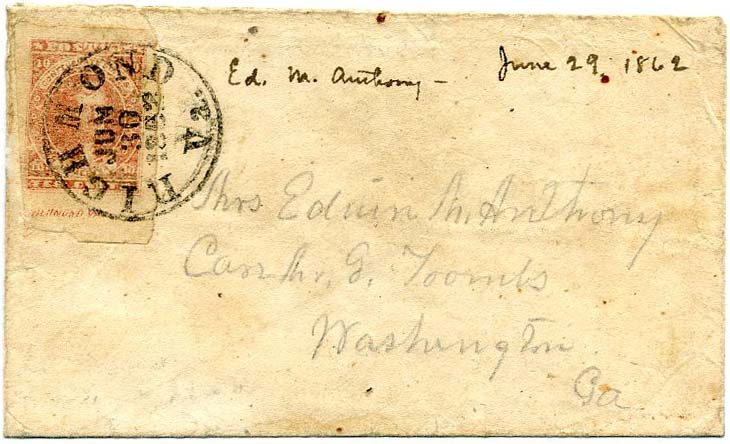 Ed. M. Anthony — June 29, 1862
RICHMOND VA.
JUN
30
1862
10 10
RICHMOND VA
Mrs Edwin M. Anthony
Care Mr. G. Toombs
Washington
Ga